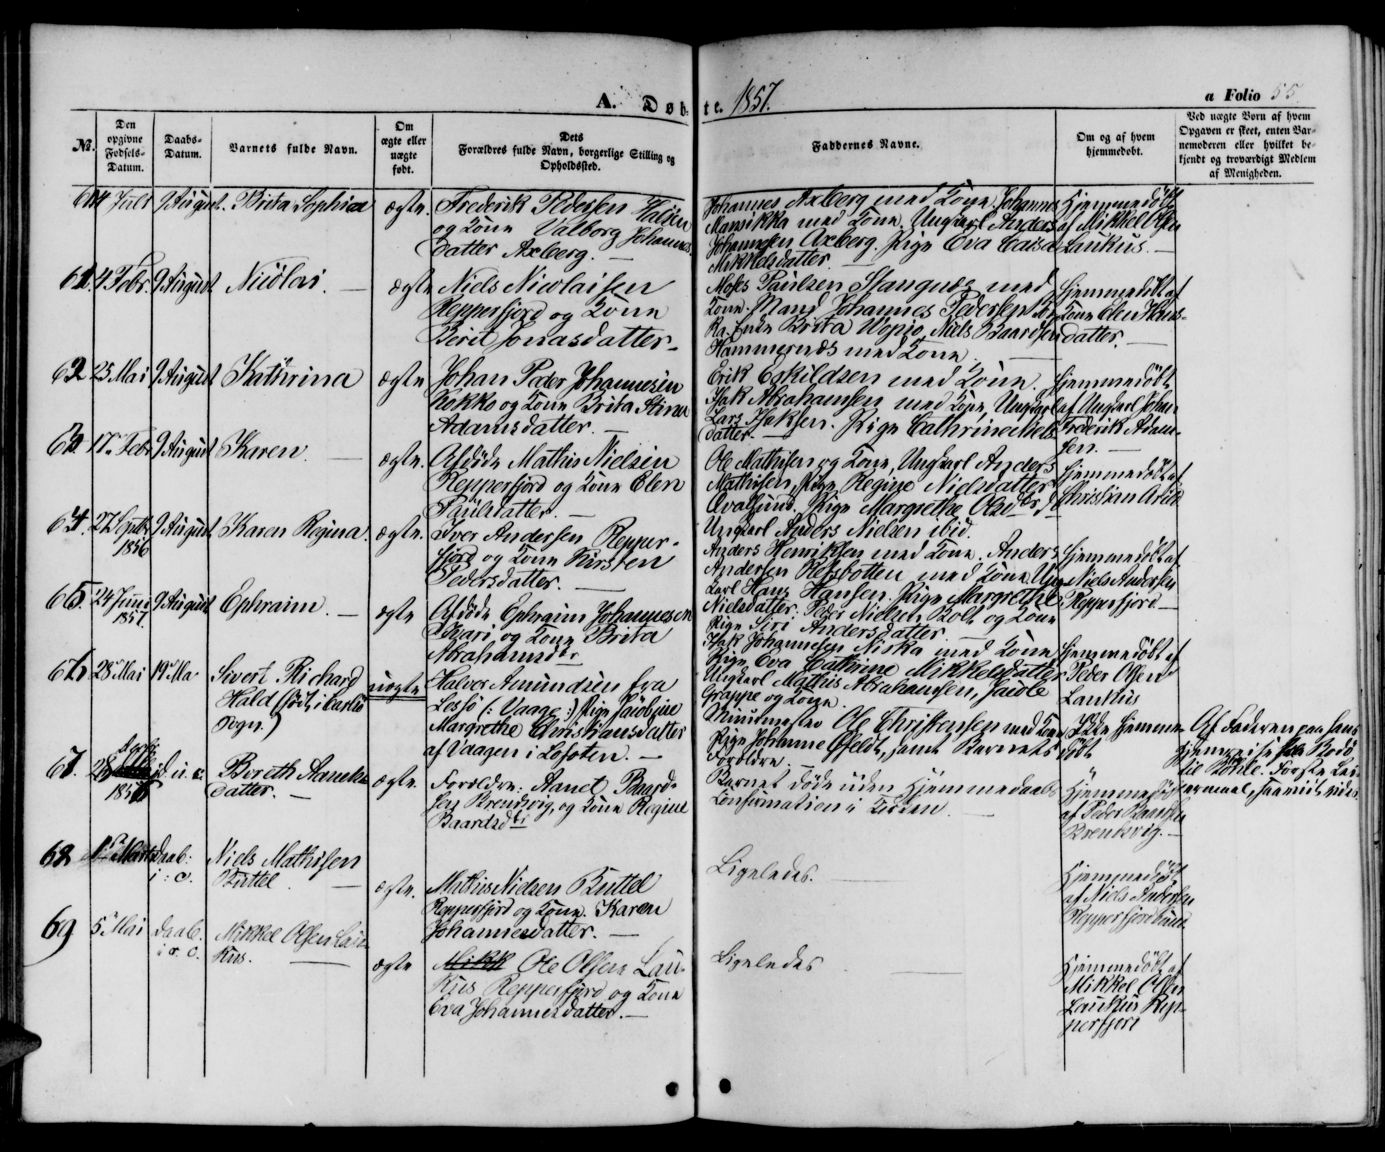 A. Døbte. 1857.
a Folio 55
No.
Den opgivne Fødsels-Datum.
Daabs-Datum.
Barnets fulde Navn.
Om ægte eller uægte født.
Dets Forældres fulde Navn, borgerlige Stilling og Opholdssted.
Faddernes Navne.
Om og af hvem hjemmedøbt.
Ved uægte Børn af hvem Opgaven er skeet, enten Barnemoderen eller hvilket bekjendt og troværdigt Medlem af Menigheden.
60 4 Juli 9 August. Brita Sophia ægte.
Frederik Pedersen Halsen
og Kone Valborg Johannes
datter Axberg. —
Johannes Axberg med Kone, Johannes
Mansikka med Kone, Ungkarl Anders
Johannesen Axberg. Pige Eva Caisa
Mikkelsdatter. —
Hjemmedøbt
af Mikkel Olsen
Laukus. —
61. 4 Febr. 9 August Nicolai. — ægte
Niels Nicolaisen
Repperfjord og Kone
Berit Jonasdatter. —
Moses Paulsen Stangnæs med
Kone. Mand Johannes Pedersen
Enke Brita Wopio, Niels Baardsen
Hammernæs med Kone. —
Hjemmedøbt af
Kone Elen Hans-
datter. —
62 25 Mai 9 August Kathrina ægte
Johan Peder Johannesen
Kokko og Kone Brita Stina
Adamsdatter. —
Erik Eskildsen med Kone.
Isak Abrahamsen med Kone, Ungkarl
Lars Isaksen. Pige Cathrine Niels
datter. —
Hjemmedøbt
af Ungkarl Johan
Frederik Adam-
sen. —
63 17. Febr 9 August Karen. — ægte.
Afdøde Mathis Nielsen
Repperfjord og Kone Elen
Paulsdatter. —
Ole Mathisen og Kone, Ungkarl Anders
Mathisen, Pige Regine Nielsdatter
Qvalsund. Pige Margrethe Olsdtr
Ungkarl Anders Nielsen ibid.
Hjemmedøbt af
Christian
64. 27. Septbr 1856 9 August Karen Regina. ægte.
Iver Andersen Repper-
fjord og Kone Kirsten
Pedersdatter. —
Anders Henriksen med Kone. Anders
Andersen Refsbotten med Kone. Ung-
karl Hans Hansen. Pige Margrethe
Nielsdatter. Peder Nielsen Kolt og Kone
Pige Siri Andersdatter.
Hjemmedøbt af
Niels Andersen
Repperfjord —
65. 24 Juni 1857. 9 August Ephraim. — ægte
Afdøde Ephraim Johannesen
og Kone Brita
Abrahamsdtr
Isak Johannesen Niska med Kone
Pige Eva Cathrine Mikkelsdatter
Ungkarl Mathis Abrahamsen,
Grappe og Kone.
Hjemmedøbt af
Peder Olsen
Laukus
66 28 Mai 19 Mai Sivert Richard
Hald (født i Carlsø
Sogn.)
uægte
Halvor Amundsen fra
Lesjø (: Vaage :) Pige Jacobine
Margrethe Christiansdatter
af Vaagen i Lofoten. —
Ole Christensen med Kone
Pige Johanne Ofeldt, samt Barnets
Forældre. —
Ikke hjemme-
døbt
Af Faderen paa hans
Hjemreise fra Bodø
til
67. 28 1856 d. u. c. Bereth Aanets-
datter. — ægte
Forældre: Aanet Baard-
sen Krensvig, og Kone Regine
Baardsdtr
Barnet døde uden Hjemmedaabs
Confirmation i Kirken. —
Hjemmedøbt
af Peder
Krensvig. —
68 Marts Daab: i: c. Niels Mathisen
Buttel. — ægte.
Mathis Nielsen Buttel
Repperfjord og Kone. Karen
Johannesdatter. —
Ligeledes. —
Hjemmedøbt
af Niels Andersen
Repperfjordbund
69 5 Mai Daab. i. c. Mikkel Olsen Lau-
kus. — ægte
Mikk Ole Olsen Lau-
kus Repperfjord og Kone
Eva Johannesdatter. —
Ligeledes —
Hjemmedøbt af
Mikkel Olsen
Laukus Rep-
perfjord